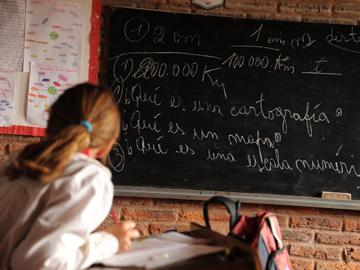 ① 2 cm 1 cm
① 200.000 Km 100.000 Km 1
¿Qué es una cartografía?
¿Qué es un mapa?
③ ¿Qué es una escala numéri